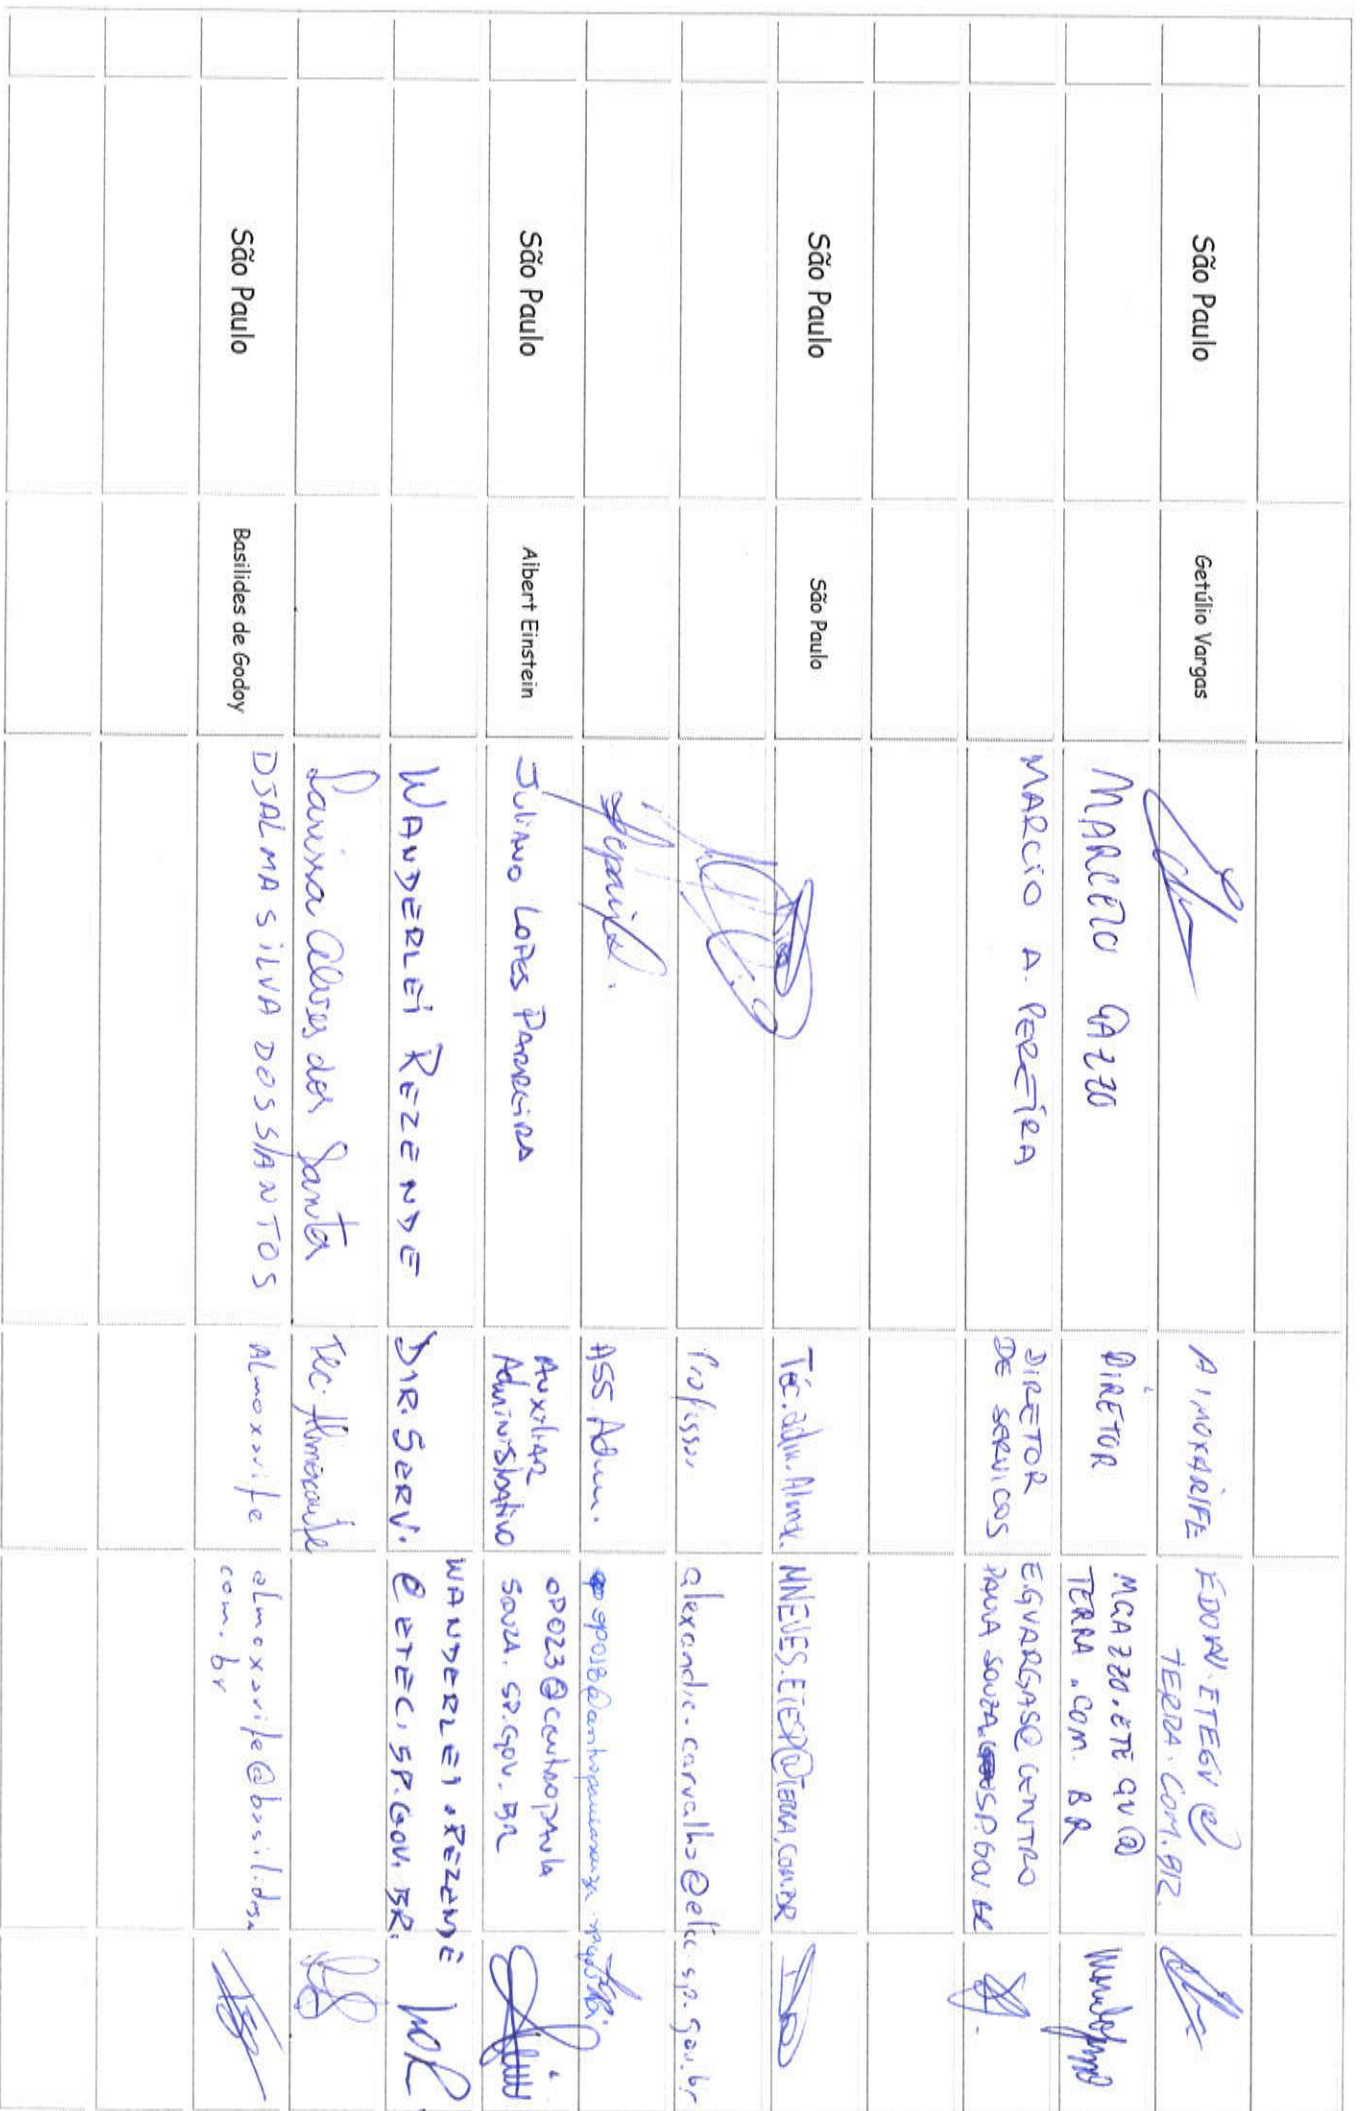 São Paulo
Getúlio Vargas
AIMOXARIFE
EDOW.ETEGV@
TERRA.COM.BR.
MARCELO GAZZO
DIRETOR
MGAZZO.ETEGV@
TERRA.COM.BR
MARCIO A. PEREIRA
DIRETOR
DE SERVICOS
EGVARGAS@CENTRO
PAULA SOUZA.SP.GOV.BR
São Paulo
São Paulo
Téc. adm. Almox.
MNEVES.ETESP@TERRA.COM.BR
Professor
alexandre.carvalho@etec.sp.gov.br
ASS. Adm.
São Paulo
Albert Einstein
JULIANO LOPES PARREIRA
AUXILIAR
Administrativo
OP023@centropaula
souza.sp.gov.br
WANDERLEI REZENDE
DIR. SERV.
WANDERLEI.REZENDE
@ETEC.SP.GOV.BR.
Larissa Alves dos Santos
Tec.
São Paulo
Basilides de Godoy
DJALMA SILVA DOS SANTOS
Almoxarife
almoxarife@basilides.
com.br